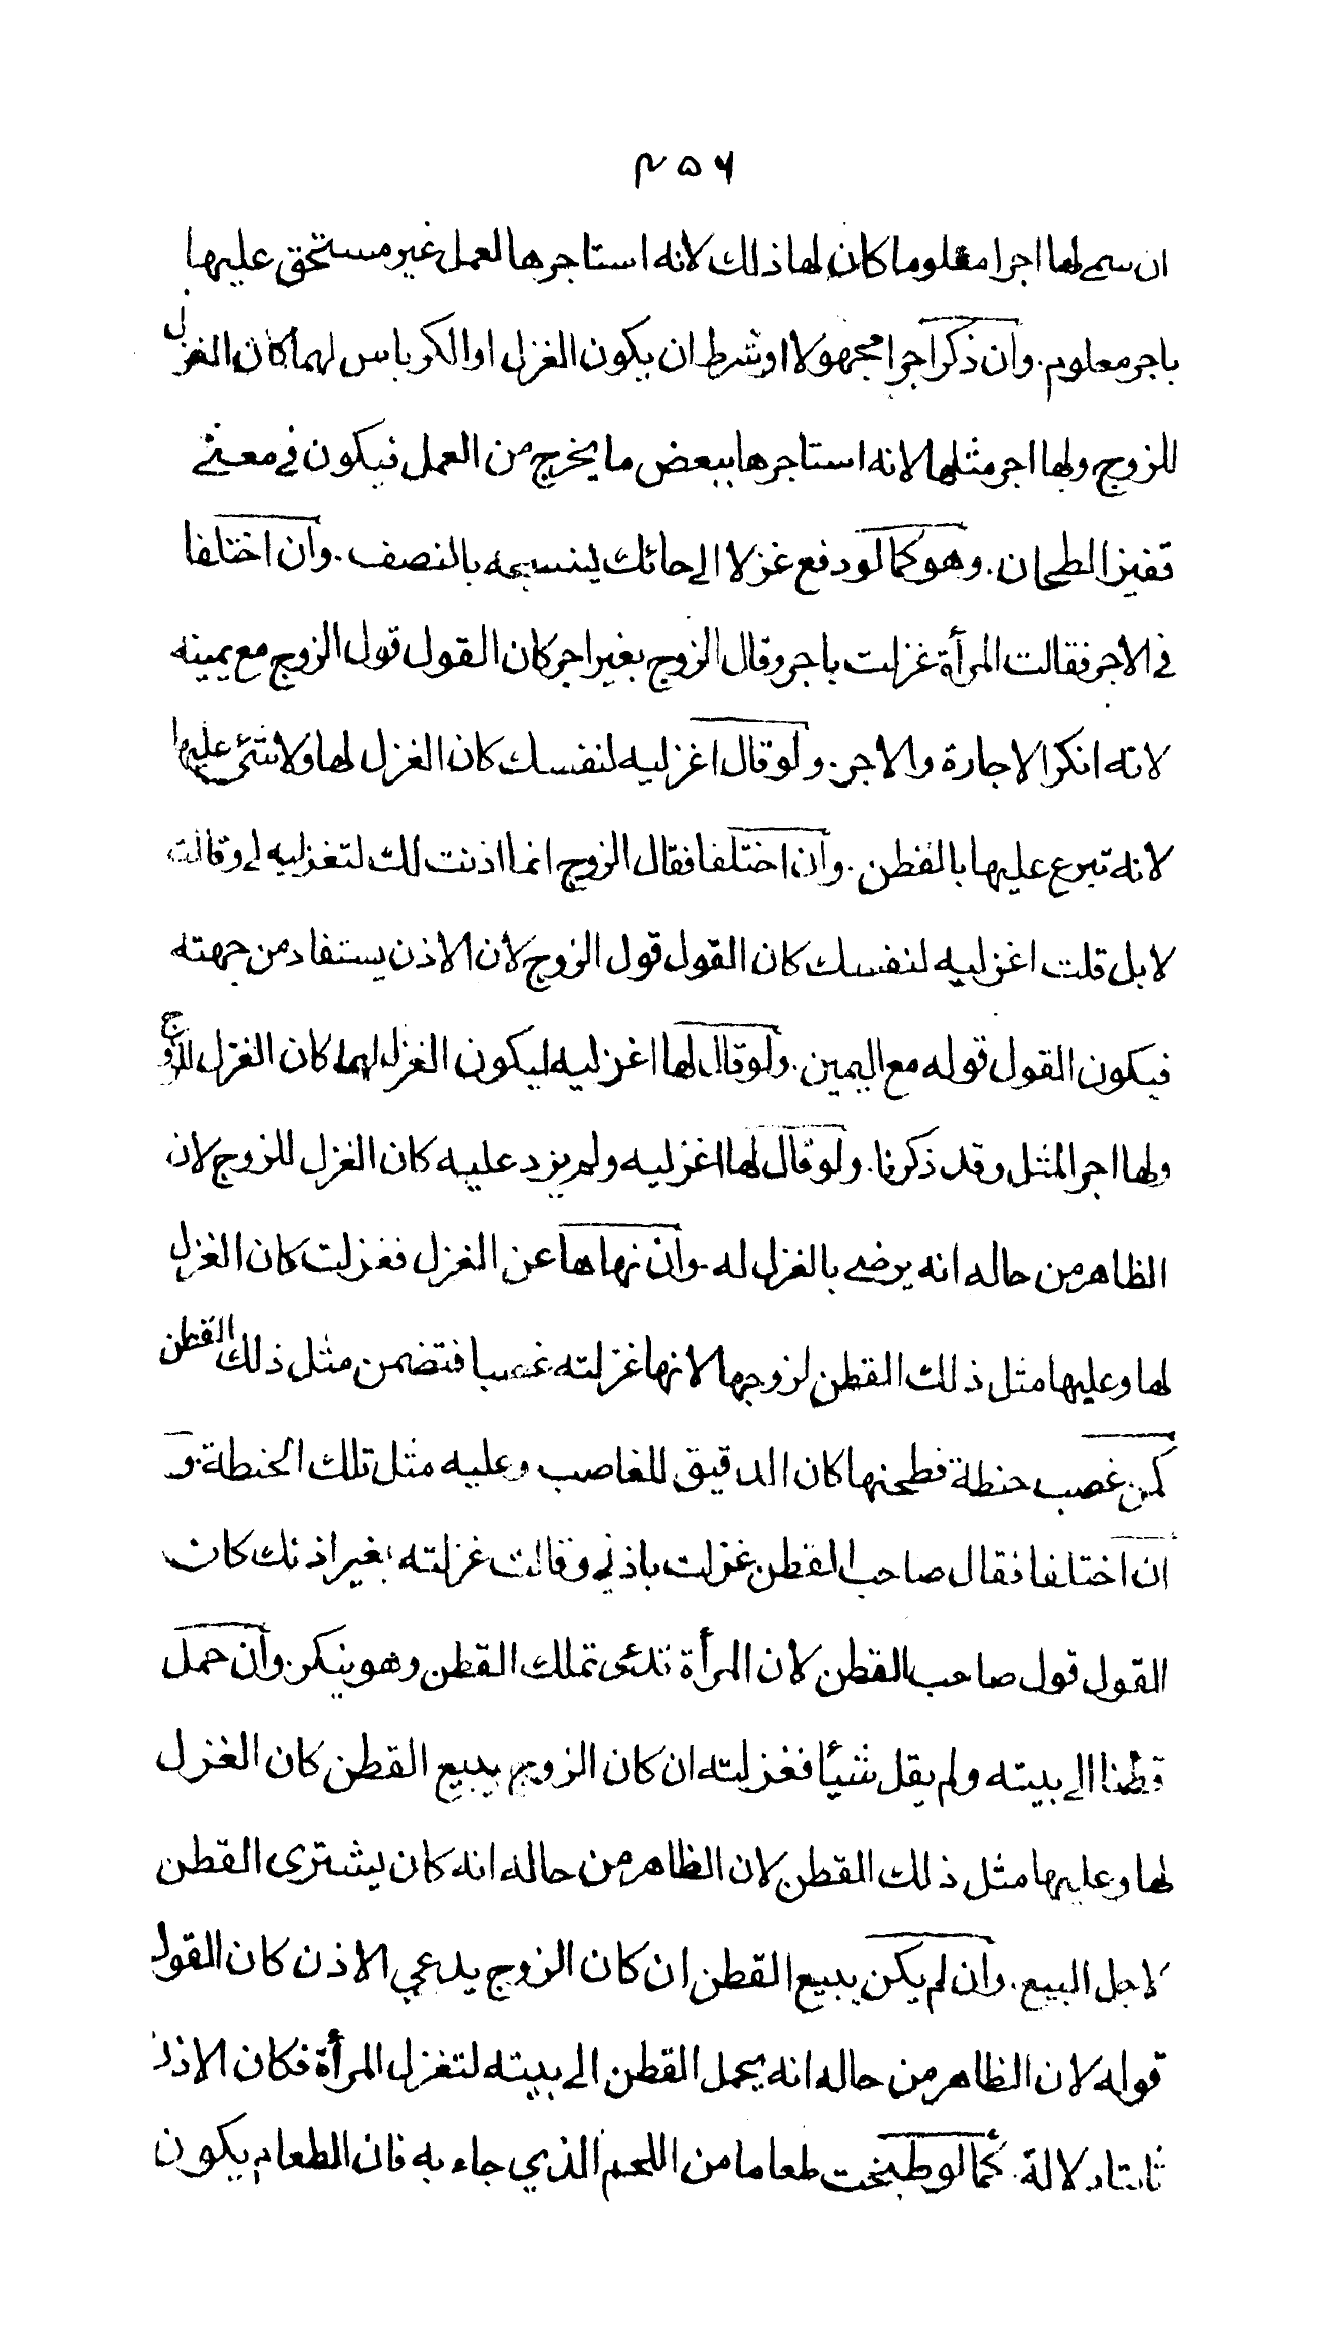 ۴۵۶
ان سمى لها اجرا معلوما كان لها ذلك لانه استاجرها لعمل غير مستحق عليها
باجر معلوم. وان ذكر اجرا مجهولا او شرط ان يكون الغزل او الكرباس لهما كان الغزل
للزوج ولها اجر مثلها لانه استاجرها ببعض ما يخرج من العمل فيكون في معنى
قفيز الطحان. وهو كما لو دفع غزلا الى حائك لينسجه بالنصف. وان اختلفا
في الاجر فقالت المرأة غزلت باجر وقال الزوج بغير اجر كان القول قول الزوج مع يمينه
لانه انكر الاجارة والاجر. ولو قال اغزليه لنفسك كان الغزل لها ولا شئ عليها
لانه تبرع عليها بالقطن. وان اختلفا فقال الزوج انما اذنت لك لتغزليه لي وقالت
لا بل قلت اغزليه لنفسك كان القول قول الزوج لان الاذن يستفاد من جهته
فيكون القول قوله مع اليمين. ولو قال لها اغزليه ليكون الغزل لهما كان الغزل للزوج
ولها اجر المثل وقد ذكرنا. ولو قال لها اغزليه ولم يزد عليه كان الغزل للزوج لان
الظاهر من حاله انه يرضى بالغزل له. وان نهاها عن الغزل فغزلت كان الغزل
لها وعليها مثل ذلك القطن لزوجها لانها غزلته غصبا فتضمن مثل ذلك القطن
كمن غصب حنطة فطحنها كان الدقيق للغاصب وعليه مثل تلك الحنطة. و
ان اختلفا فقال صاحب القطن غزلت باذني وقالت غزلته بغير اذنك كان
القول قول صاحب القطن لان المرأة تدعى تملك القطن وهو ينكر. وان حمل
قطنا الى بيته ولم يقل شيأ فغزلته ان كان الزوج يبيع القطن كان الغزل
لها وعليها مثل ذلك القطن لان الظاهر من حاله انه كان يشترى القطن
لاجل البيع. وان لم يكن يبيع القطن ان كان الزوج يدعي الاذن كان القول
قوله لان الظاهر من حاله انه يحمل القطن الى بيته لتغزل المرأة فكان الاذن
ثابتا دلالة. كما لو طبخت طعاما من اللحم الذي جاء به فان الطعام يكون